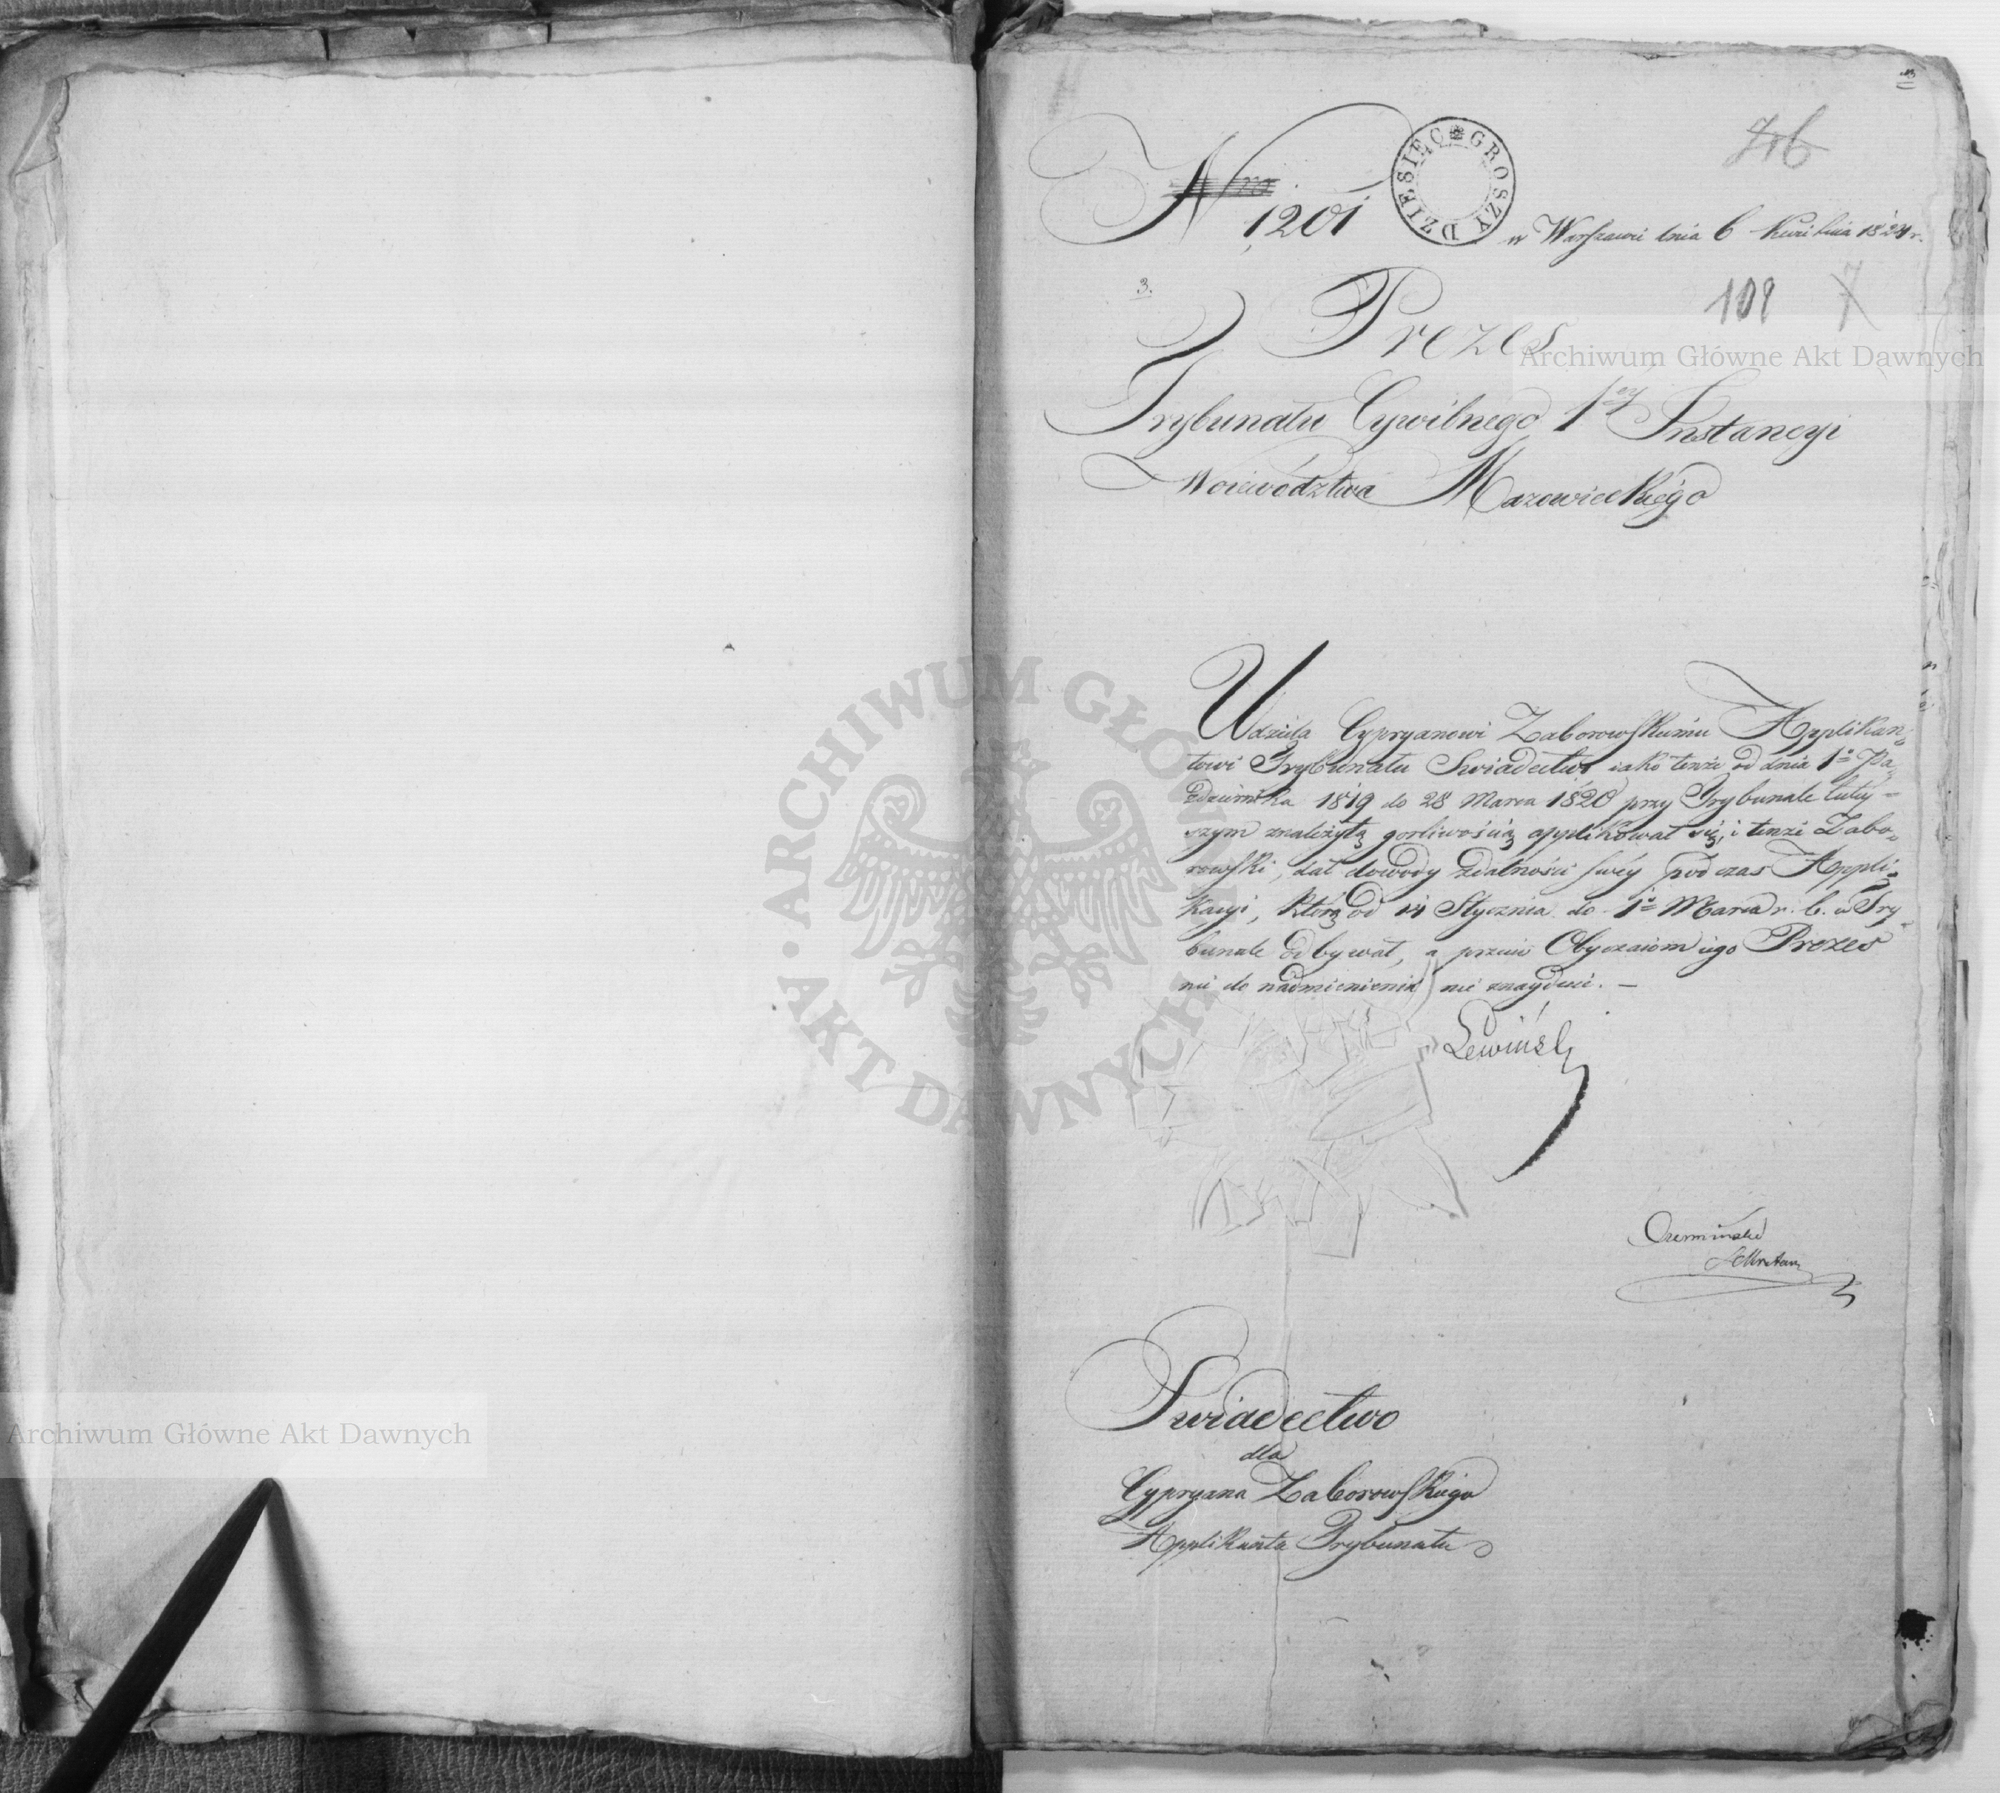 3
N
1201
DZIESIĘC GROSZY
w Warszawie dnia 6 Kwietnia 1821 r.
3.
109
7
Prezes
Archiwum Główne Akt Dawnych
Trybunału Cywilnego 1ey Instancyi
Woiewództwa Mazowieckiego
Udziela Cypryanowi Zaborowskiemu Applikan-
towi Trybunału Swiadectwo iako tenże od dnia 1o Pa-
zdziernika 1819 do 28 Marca 1820 przy Trybunale tutey-
szym znależytą gorliwością applikował się, i tenże Zabo-
rowski, dał dowody zdatności swéy podczas Appli-
kacyi, którą od 14 Stycznia do 1o Marca r. b. w Try-
bunale odbywał, a przeciw Obyczaiom iego Prezes
nic do nadmienienia nie znayduie. —
Lewiński
Czermiński
Sekretarz
ARCHIWUM GŁÓWNE AKT DAWNYCH
Swiadectwo
dla
Cypryana Zaborowskiego
Applikanta Trybunału
Archiwum Główne Akt Dawnych